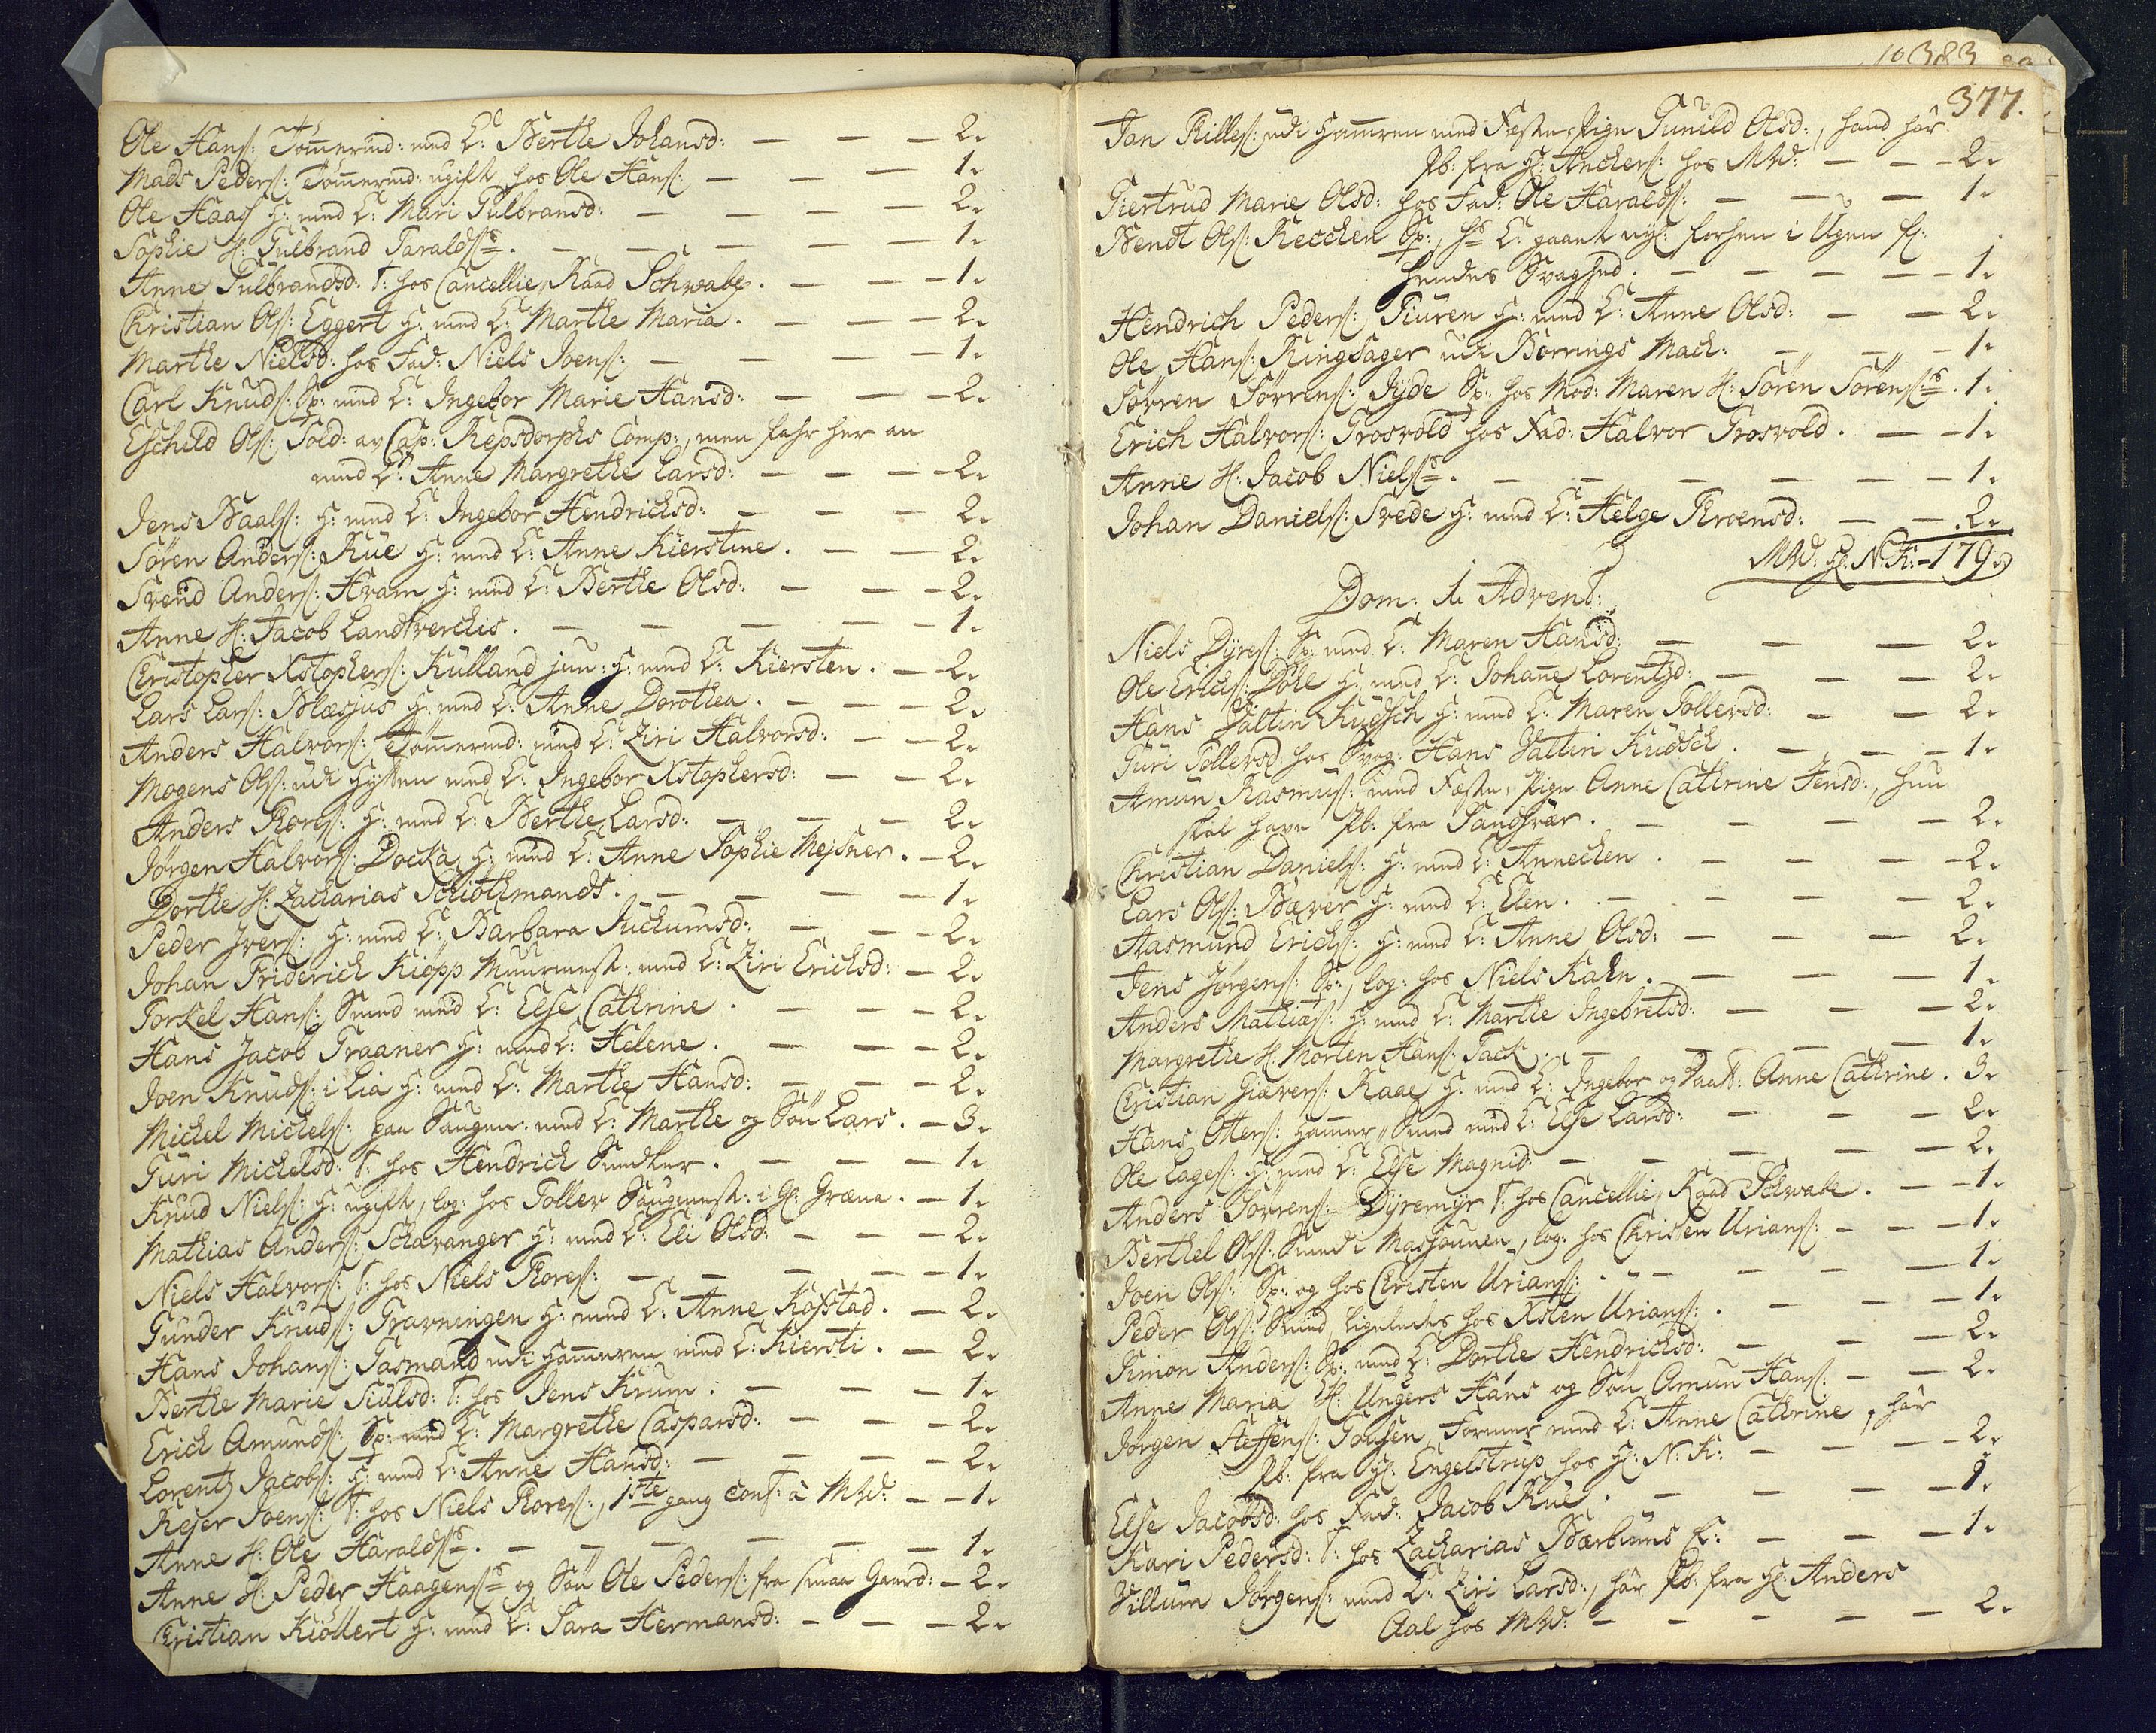 Ole Hans: Tömermd: med K: Berthe Johansd: — — — 2.
Mads Peders: Tömermd: ugift hos Ole Hans: — — — 1.
Ole Haas H: med K: Mari Gulbransd: — — — — 2.
Sophie H: Gulbrand Taralds — — — — 1.
Anne Gulbrandsd: T: hos Cancellie Raad Schwabe. — — — 1.
Christian Ols: Eggert H: med K: Marthe Maria. — — — 2.
Marthe Nielsd: hos Fad: Niels Joens: — — — — 1.
Carl Knuds: Sp: med K: Ingebor Marie Hansd: — — — 2.
Eschild Ols: Sold: av Cap: Repsdorphs Comp:, men her an
med K: Anne Margrethe Larsd: — — — 2.
Jens Baals: H: med K: Ingebor Hendrichsd: — — — 2.
Sören Anders: Rue H: med K: Anne Kierstine. — — 2.
Svend Anders: Hvam H: med K: Berthe Olsd: — — — 2.
Anne H: Jacob Landtverchis. — — — — 1.
Christopher Xstophers: Kulland jun: H: med K: Kiersten. — 2.
Lars Lars: Blæsjus H: med K: Anne Dorothea. — — — 2.
Anders Halvors: Tömermd: med K: Ziri Halvorsd: — — 2.
Mogens Ols: udi Hytten med K: Ingebor Xstophersd: — — 2.
Anders Rores: H: med K: Berthe Larsd: — — — 2.
Jörgen Halvors: Docka H: med K: Anne Sophie Mejsner. — 2.
Dorthe H: Zacharias Schiothmands. — — — 1.
Peder Ivers: H: med K: Barbara Juchumsd: — — — 2.
Johan Friderich Kiöpp Muurmest: med K: Ziri Erichsd: — 2.
Torkel Hans: Smed med K: Else Cathrine. — — — 2.
Hans Jacob Graaner H: med K: Helene. — — — 2.
Joen Knuds: i Lia H: med K: Marthe Hansd: — — — 2.
Michel Michels: paa Saugen: med K: Marthe og Sön Lars. — 3.
Guri Michelsd: T: hos Hendrich Smelter. — — — 1.
Knud Niels: H: ugift, log: hos Toller Saugmest: i Gl: Græna. — 1.
Mathias Anders: Schavanger H: med K: Eli Olsd: — — — 2.
Niels Halvors: T: hos Niels Rores: — — — — 1.
Gunder Knuds: Gravningen H: med K: Anne Kafstad. — 2.
Hans Johans: Gasmand udi Hammeren med K: Kiersti. — 2.
Berthe Marie Siulsd: T: hos Jens Krum. — — — 1.
Erich Amunds: Sp: med K: Margrethe Caspersd: — — — 2.
Lorentz Jacobs: H: med K: Anne Hansd: — — — — 2.
Rejer Joens: T: hos Niels Rores:, 1ste gang conf: a MW: — — 1.
Anne H: Ole Haralds. — — — — — 1.
Anne H: Peder Haagens og Sön Ole Peders: fra smaa Gaard: — 2.
Christian Kiöllert H: med K: Sara Hermansd: — — — 2.
10383
377.
Jan Killes: udi Hameren med Fæste-Pige Gunild Olsd:, hand har
Pb: fra H: Anchers: hos MW: — — — 2.
Giertrud Marie Olsd: hos Fad: Ole Haralds: — — — 1.
Bendt Ols: Recchen Sp:, hs K: gaaet nyl: forhen i Ugen f:
hendes Svaghed. — — — — — 1.
Hendrich Peders: Giuren H: med K: Anne Olsd: — — 2.
Ole Hans: Ringsager udi Börnings Mach: — — — 1.
Sörren Sörrens: Jyde Sp: hos Mod: Maren H: Sören Sörens. 1.
Erich Halvors: Grosvold hos Fad: Halvor Grosvold. — — 1.
Anne H: Jacob Niels. — — — — — — 1.
Johan Daniels: Svede H: med K: Helge Kroensd: — — 2.
MW: Hr. N: K: — 179.
Dom: 1. Advent:
Niels Dyres: Sp: med K: Maren Hansd: — — — 2.
Ole Erichs: Döhl H: med K: Johane Lorentzd: — — — 2.
Hans Valtin Kudsch H: med K: Maren Tollersd: — — 2.
Guri Tollersd: hos Svog: Hans Valtin Kudsch. — — — 1.
Amun Rasmus: med Fæste-Pige Anne Cathrine Jensd:, hun
skal have Pb: fra Sandsvær. — — — — 2.
Christian Daniels: H: med K: Annechen. — — — 2.
Lars Ols: Bæver H: med K: Elen. — — — — 2.
Aasmund Erichs: H: med K: Anne Olsd: — — — 2.
Jens Jörgens: Sp:, log: hos Niels Kahn. — — — — 1.
Anders Mathias: H: med K: Marthe Ingebretsd: — — — 2.
Margrethe H: Morten Hans: Tack. — — — — 1.
Christian Giævers: Raae H: med K: Ingebor og Daat: Anne Cathrine. 3.
Hans Otters: Hammer-Smed med K: Else Larsd: — — — 2.
Ole Lages: H: med K: Else Magnid: — — — — 2.
Anders Sörrens: Dyremyr T: hos Cancellie Raad Schwabe. — — 1.
Berthel Ols: Smed i Masovnen, log: hos Christen Urians: — — — 1.
Joen Ols: Sp: og hos Christen Urians: — — — — 1.
Peder Ols: Smed, ligeledes hos Xsten Urians: — — — 1.
Simon Anders: Sp: med K: Dorthe Hendrichsd: — — — 2.
Anne Maria H: Ungers Hans og Sön Amun Hans: — — 2.
Jörgen Steffens: Goussen, Former med K: Anne Cathrine, har
Pb: fra Hr: Engelstrup hos Hr: N: K: — — — 2.
Else Jacobsd: hos Fad: Jacob Rue. — — — — 1.
Kari Pedersd: T: hos Zacharias Bærbums E: — — — 1.
Villum Jörgens: med K: Ziri Larsd:, har Pb: fra Hr: Anders
Aal hos MW: — — — — — 2.